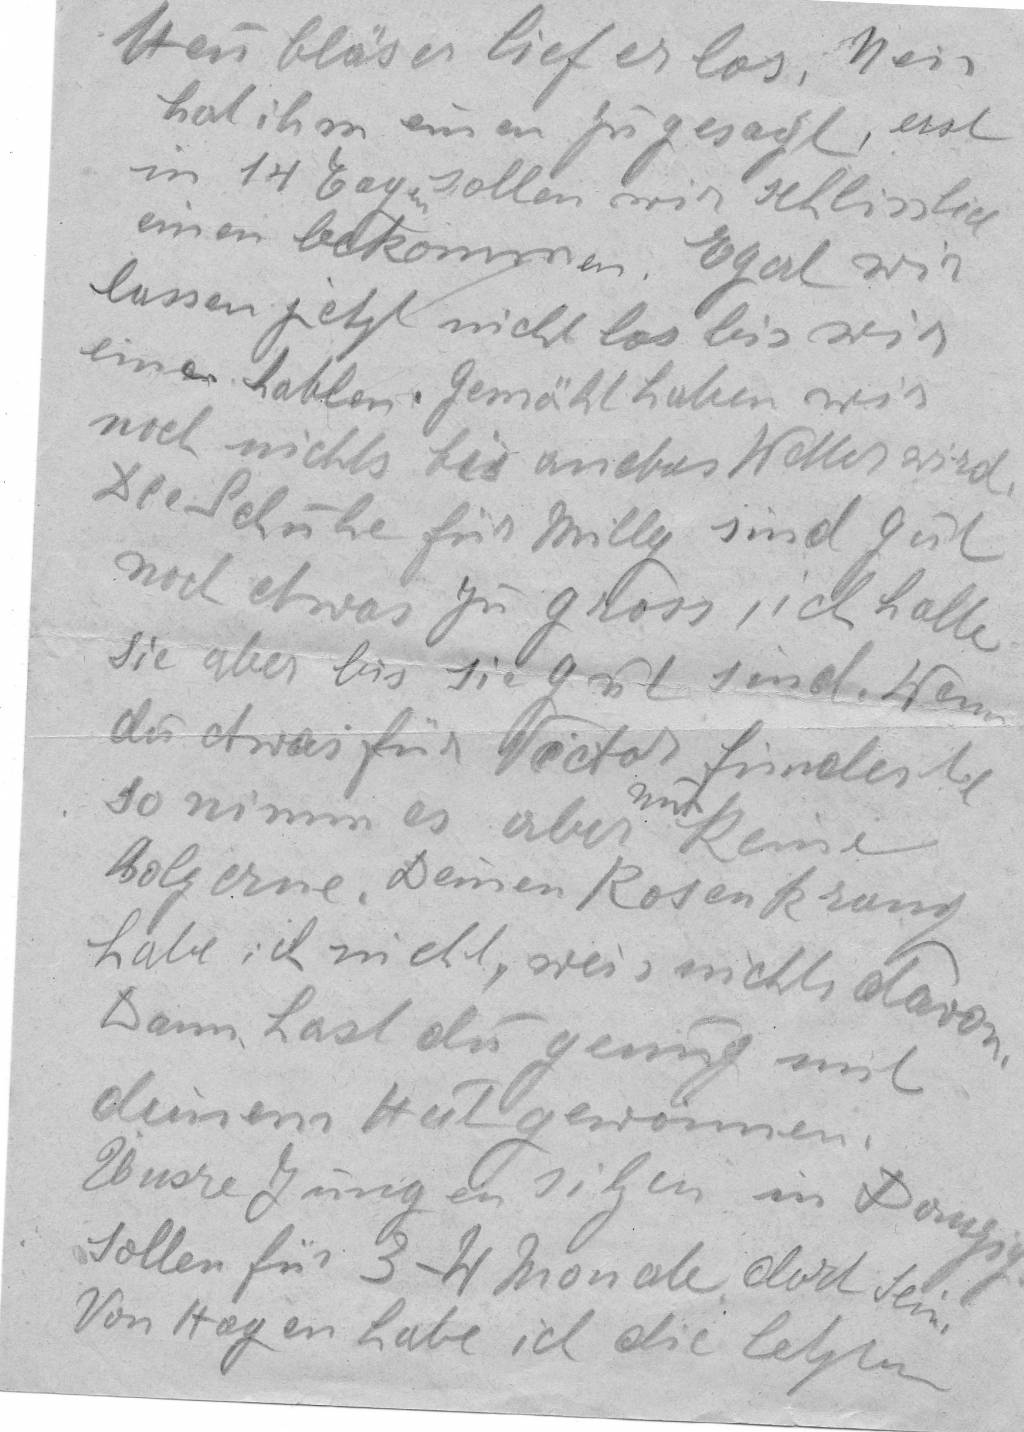 Heubläser lief er los. Neis
hat ihm einen zugesagt, erst
in 14 Tagen sollen wir schlisslich
einen bekommen. Egal wir
lassen jetzt nicht los bis wir
einen haben. Gemäht haben wir
noch nichts bis andres Wetter wird.
Die Schuhe für Milly sind gut
noch etwas zu gross, ich halte
sie aber bis sie gut sind. Wenn
du etwas für Victor findest
so nimm es aber nur keine
holzerne. Deinen Rosenkranz
habe ich nicht, weis nichts davon.
Dann hast du genug mit
deinem Hut gewonnen.
Unsre Jungen sitzen in Danzig
sollen für 3-4 Monate dort sein.
Von Hagen habe ich die letzten